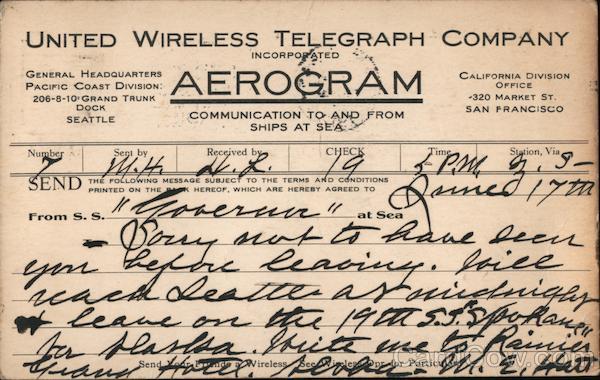 UNITED WIRELESS TELEGRAPH COMPANY
INCORPORATED
GENERAL HEADQUARTERS
PACIFIC COAST DIVISION:
206-8-10 GRAND TRUNK
DOCK
SEATTLE
AEROGRAM
COMMUNICATION TO AND FROM
SHIPS AT SEA
CALIFORNIA DIVISION
OFFICE
-320 MARKET ST.
SAN FRANCISCO
Number Sent by Received by CHECK Time Station, Via
7 M.H. H.L. 19 5 P.M.
SEND THE FOLLOWING MESSAGE SUBJECT TO THE TERMS AND CONDITIONS
PRINTED ON THE BACK HEREOF, WHICH ARE HEREBY AGREED TO
June 17th
From S. S. "Governor" at Sea
- Sorry not to have seen
you before leaving. Will
reach Seattle at midnight
leave on the 19th S.S. "Spokane"
for Alaska. Write me to Rainier
Grand
Send Your Friends a Wireless See Wireless Opr. for Particulars
CardCow.com